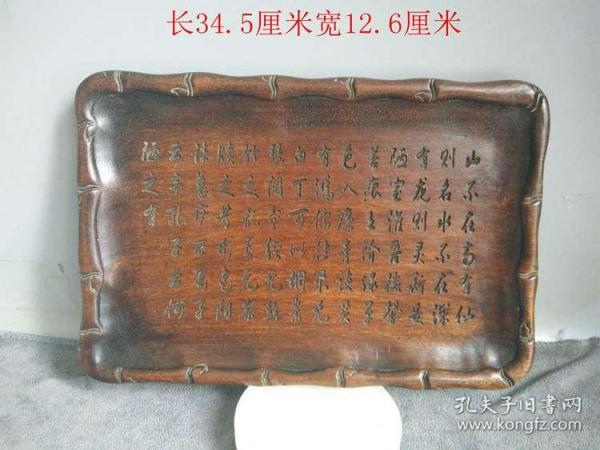 长34.5厘米宽12.6厘米
山不在高有仙
则名水不在深
有龙则灵斯是
陋室惟吾德馨
苔痕上阶绿草
色入廉青谈笑
有鸿儒往来无
白丁可以调素
琴阅金经无丝
竹之乱耳无案
牍之劳形南阳
诸葛庐西蜀子
云亭孔子云何
陋之有
孔夫子旧书网
www.kongfz.com